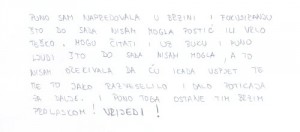 PUNO SAM NAPREDOVALA U BRZINI I FOKUSIRANJU
ŠTO DO SADA NISAM MOGLA POSTIĆ ILI VRLO
TEŠKO. MOGU ČITATI I UZ BUKU I PUNO
LJUDI ŠTO DO SADA NISAM MOGLA, A TO
NISAM OČEKIVALA DA ĆU IKADA USPJET TE
ME TO JAKO RAZVESELILO I DALO POTICAJA
ZA DALJE. I PUNO TOGA OSTANE TIM BRZIM
PRELASKOM! VRIJEDI!